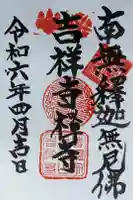 南無釋迦無尼佛
吉祥寺禅寺
令和六年四月吉日